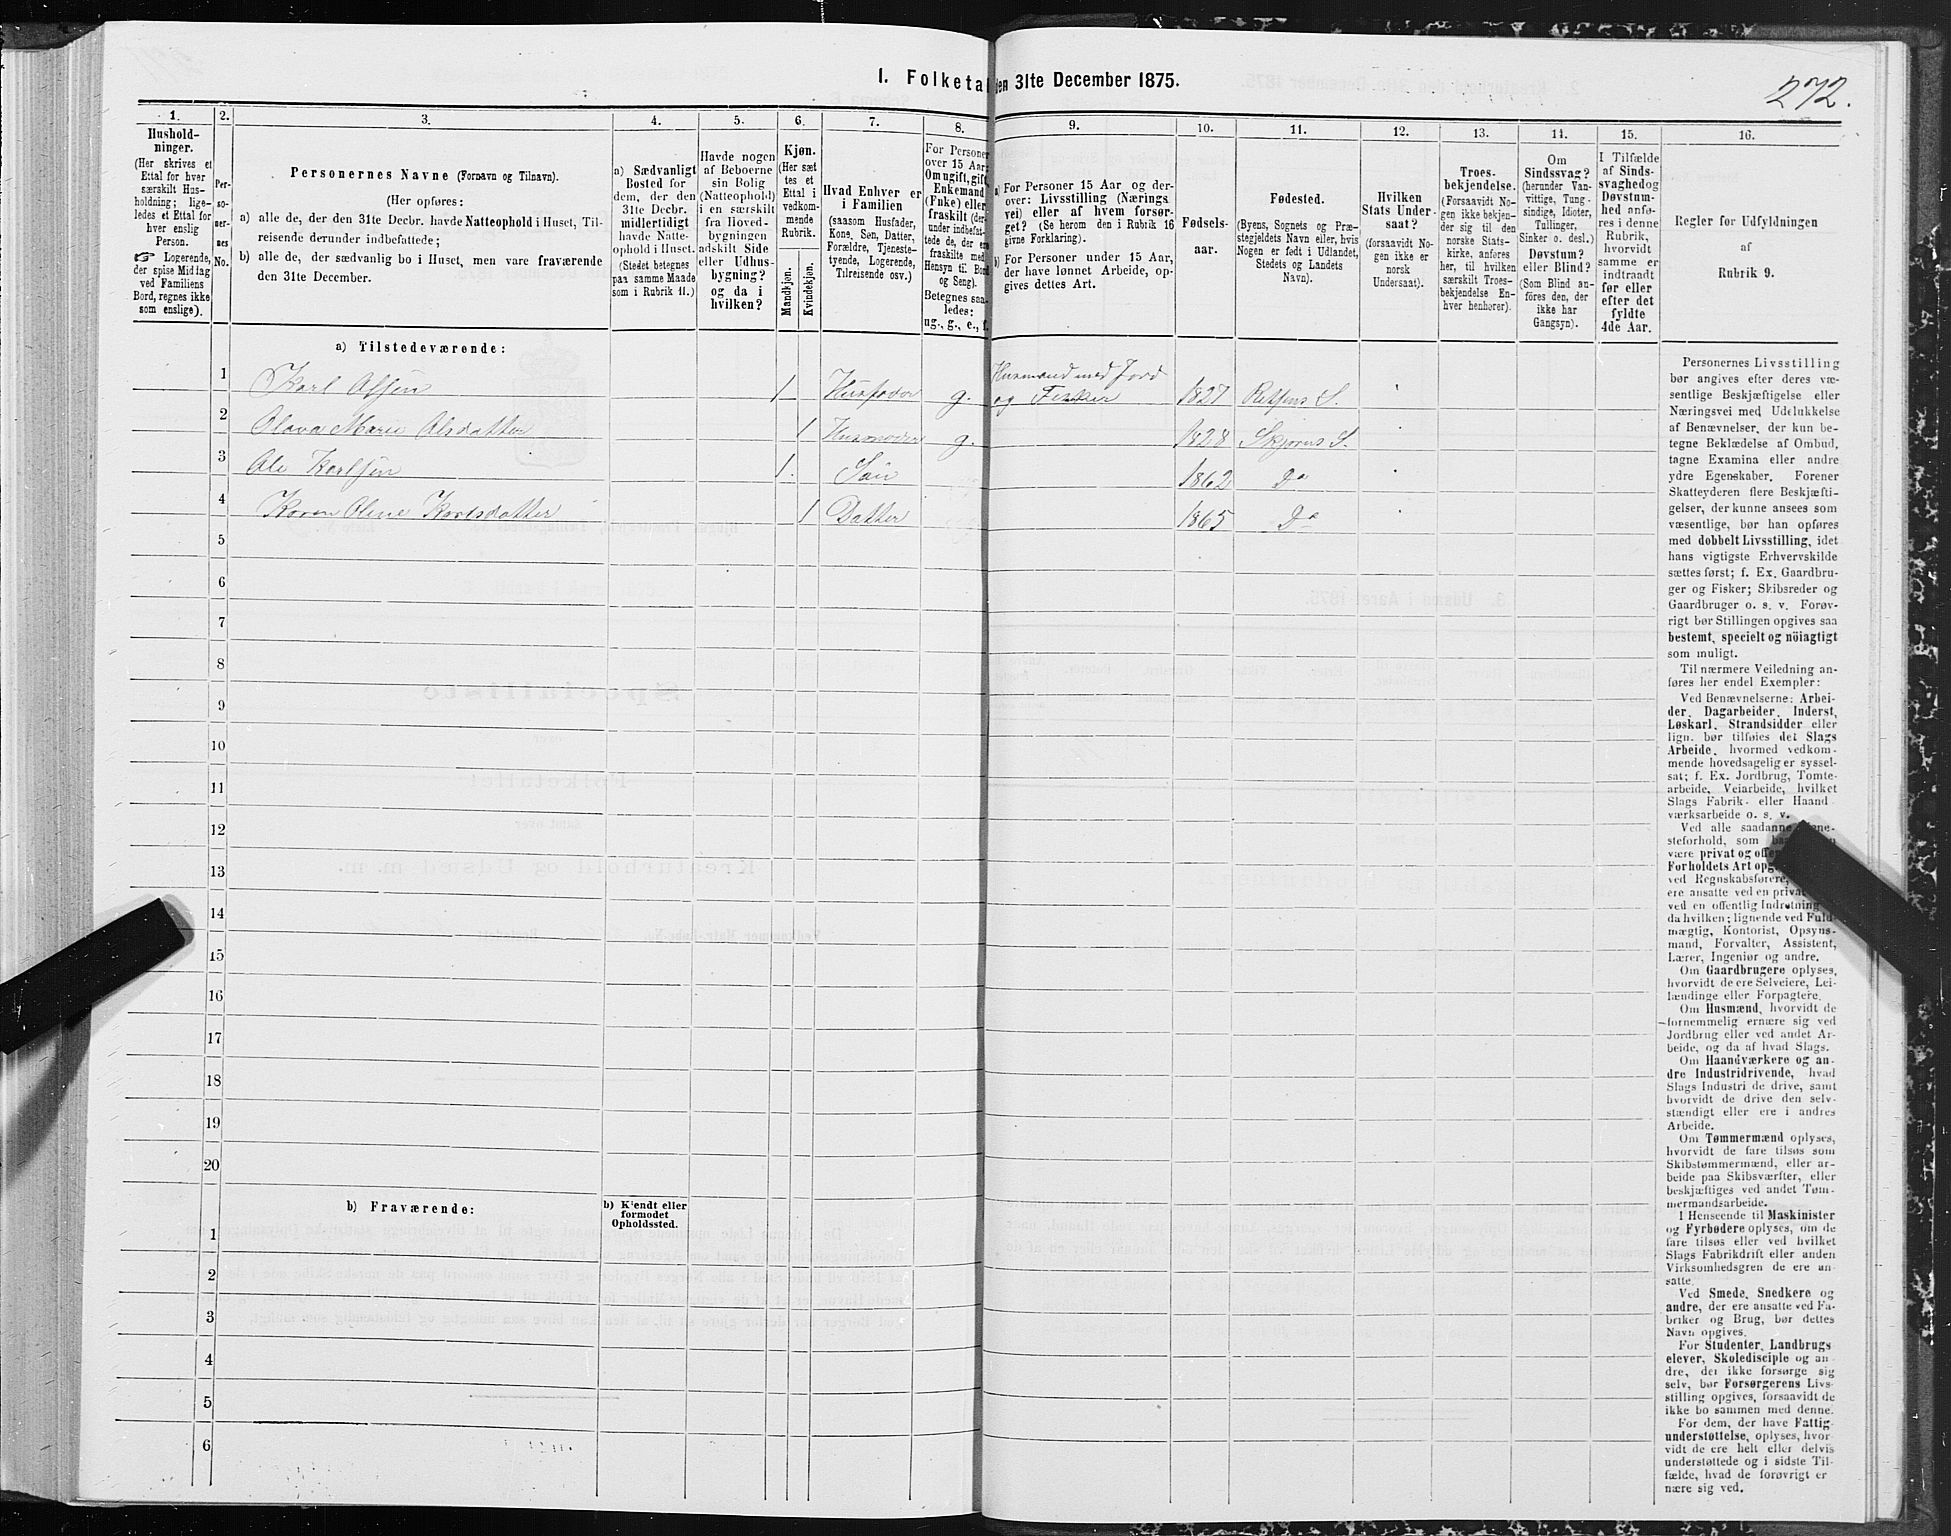 272.
I. Folketal den 31te December 1875.
1. 2. 3. 4. 5. 6. 7. 8. 9. 10. 11. 12. 13. 14. 15. 16.
Hushold-
ninger.
(Her skrives et
Ettal for hver
særskilt Hus-
holdning; lige-
ledes et Ettal for
hver enslig
Person.
☞ Logerende,
der spise Middag
ved Familiens
Bord, regnes ikke
som enslige).
Per-
so-
ner-
nes
No.
Personernes Navne (Fornavn og Tilnavn).
(Her opføres:
a) alle de, der den 31te Decbr. havde Natteophold i Huset, Til-
reisende derunder indbefattede;
b) alle de, der sædvanlig bo i Huset, men vare fraværende
den 31te December.
a) Sædvanligt
Bosted for
dem, der den
31te Decbr.
midlertidigt
havde Natte-
ophold i Huset.
(Stedet betegnes
paa samme Maade
som i Rubrik 11.)
Havde nogen
af Beboerne
sin Bolig
(Natteophold)
i en særskilt
fra Hoved-
bygningen
adskilt Side
eller Udhus-
bygning?
og da i
hvilken?
Kjøn.
(Her sæt
tes et
Ettal i
vedkom-
mende
Rubrik.
Mandkjøn.
Kvindekjøn.
Hvad Enhver er
i Familien
(saasom Husfader,
Kone, Søn, Datter,
Forældre, Tjeneste-
tyende, Logerende,
Tilreisende osv.)
For Personer
over 15 Aar:
Om ugift, gift,
Enkemand
(Enke) eller
fraskilt (der-
under indbefat-
tede de, der ere
fraskilte med
Hensyn til Bord
og Seng).
Betegnes saa-
ledes:
ug., g., e., f.
a) For Personer 15 Aar og der-
over: Livsstilling (Nærings
vei) eller af hvem forsør-
get? (Se herom den i Rubrik 16
givne Forklaring).
b) For Personer under 15 Aar,
der have lønnet Arbeide, op-
gives dettes Art.
Fødsels-
aar.
Fødested.
(Byens, Sognets og Præ-
stegjeldets Navn eller, hvis
Nogen er født i Udlandet,
Stedets og Landets
Navn).
Hvilken
Stats Under-
saat?
(forsaavidt No-
gen ikke er
norsk
Undersaat).
Troes-
bekjendelse.
(Forsaavidt No-
gen ikke bekjen-
der sig til den
norske Stats-
kirke, anføres
her, til hvilken
særskilt Troes-
bekjendelse En-
hver henhører).
Om
Sindssvag?
(herunder Van-
vittige, Tung-
sindige, Idioter,
Tullinger,
Sinker o. desl.)
Døvstum?
eller Blind?
(Som Blind an-
føres den, der
ikke har
Gangsyn).
I Tilfælde
af Sinds-
svaghed og
Døvstum-
hed anfø-
res i denne
Rubrik,
hvorvidt
samme er
indtraadt
før eller
efter det
fyldte
4de Aar.
Regler for Udfyldningen
af
Rubrik 9.
a) Tilstedeværende:
1 Karl Olsen 1 Husfader g. Husmand med Jord og Fisker 1827 S.
2 Olava Marie Olsdatter 1 Husmoder g. 1828 Skjørns S.
3 Ole Karlsen 1. Søn 1862 Do
4 Karen Oline Karlsdatter 1 Datter 1865 Do
5
6
7
8
9
10
11
12
13
14
15
16
17
18
19
20
b) Fraværende:
b) Kjendt eller
formodet
Opholdssted.
1
2
3
4
5
6
Personernes Livsstilling
bør angives efter deres væ-
sentlige Beskjæftigelse eller
Næringsvei med Udelukkelse
af Benævnelser, der kun be-
tegne Beklædelse af Ombud,
tagne Examina eller andre
ydre Egenskaber. Forener
Skatteyderen flere Beskjæfti-
gelser, der kunne ansees som
væsentlige, bør han opføres
med dobbelt Livsstilling, idet
hans vigtigste Erhvervskilde
sættes først; f. Ex. Gaardbru-
ger og Fisker; Skibsreder og
Gaardbruger o. s. v. Forøv-
rigt bør Stillingen opgives saa
bestemt, specielt og nöiagtigt
som muligt.
Til nærmere Veiledning an-
føres her endel Exempler:
Ved Benævnelserne: Arbei-
der, Dagarbeider, Inderst,
Løskarl, Strandsidder eller
lign. bør tilføies det Slags
Arbeide, hvormed vedkom-
mende hovedsagelig er syssel-
sat; f. Ex. Jordbrug, Tomte-
arbeide, Veiarbeide, hvilket
Slags Fabrik- eller Haand-
værksarbeide o. s. v.
Ved alle saadanne
steforhold, som
være privat og
Forholdets Art
ved Regnskabsførere,
ere ansatte ved en privat
ved en offentlig Indretning
da hvilken; lignende ved Fuld-
mægtig, Kontorist, Opsyns-
mand, Forvalter, Assistent,
Lærer, Ingeniør og andre.
Om Gaardbrugere oplyses,
hvorvidt de ere Selveiere, Lei-
lændinge eller Forpagtere.
Om Husmænd, hvorvidt de
fornemmelig ernære sig ved
Jordbrug eller ved andet Ar-
beide, og da af hvad Slags.
Om Haandværkere og an-
dre Industridrivende, hvad
Slags Industri de drive, samt
hvorvidt de drive den selv-
stændigt eller ere i andres
Arbeide.
Om Tømmermænd oplyses,
hvorvidt de fare tilsøs som
Skibstømmermænd, eller ar-
beide paa Skibsværfter, eller
beskjæftiges ved andet Tøm-
mermandsarbeide.
I Henseende til Maskinister
og Fyrbødere oplyses, om de
fare tilsøs eller ved hvilket
Slags Fabrikdrift eller anden
Virksomhedsgren de ere an-
satte.
Ved Smede, Snedkere og
andre, der ere ansatte ved Fa-
briker og Brug, bør dettes
Navn opgives.
For Studenter, Landbrugs
elever, Skoledisciple og an-
dre, der ikke forsørge sig
selv, bør Forsørgerens Livs-
stilling opgives, forsaavidt de
ikke bo sammen med denne.
For dem, der have Fattig-
understøttelse, oplyses, hvor-
vidt de ere helt eller delvis
understøttede og i sidste Til-
fælde, hvad de forøvrigt er
nære sig ved.